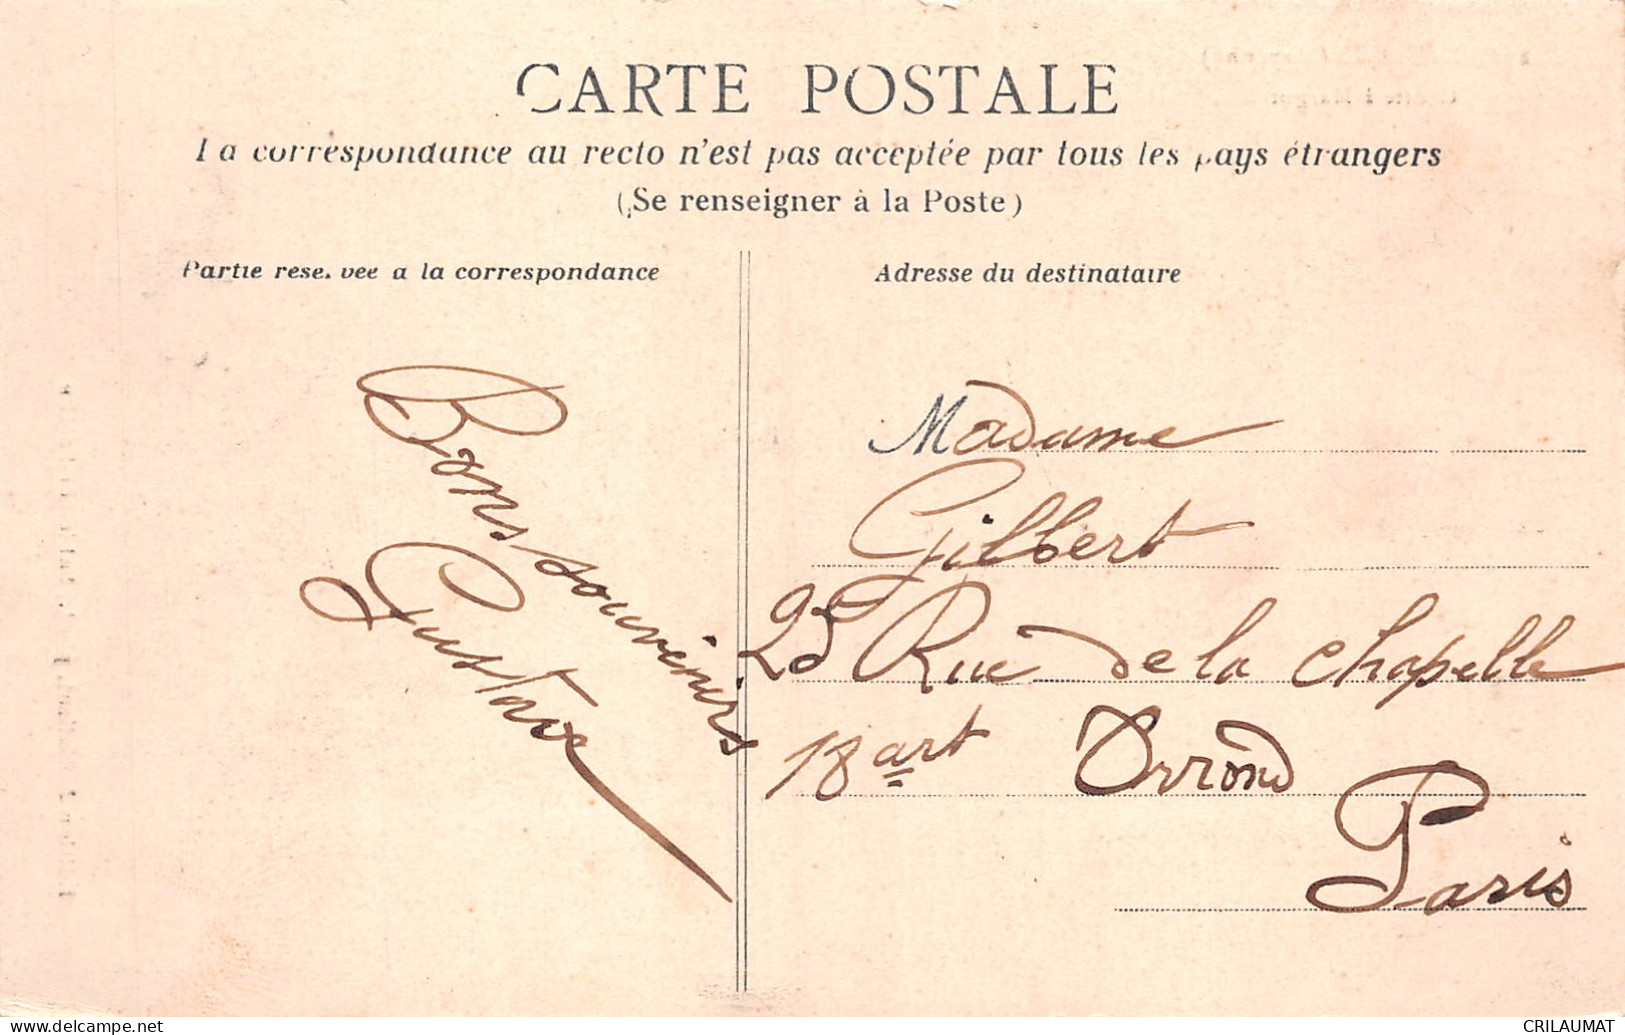 CARTE POSTALE
La correspondance au recto n'est pas acceptée par tous les pays étrangers
(Se renseigner à la Poste)
Partie reservée a la correspondance
Adresse du destinataire
Bons souvenirs
Gustave
Madame
Gilbert
25 Rue de la chapelle
18 art Arrond
Paris
www.delcampe.net
CRILAUMAT